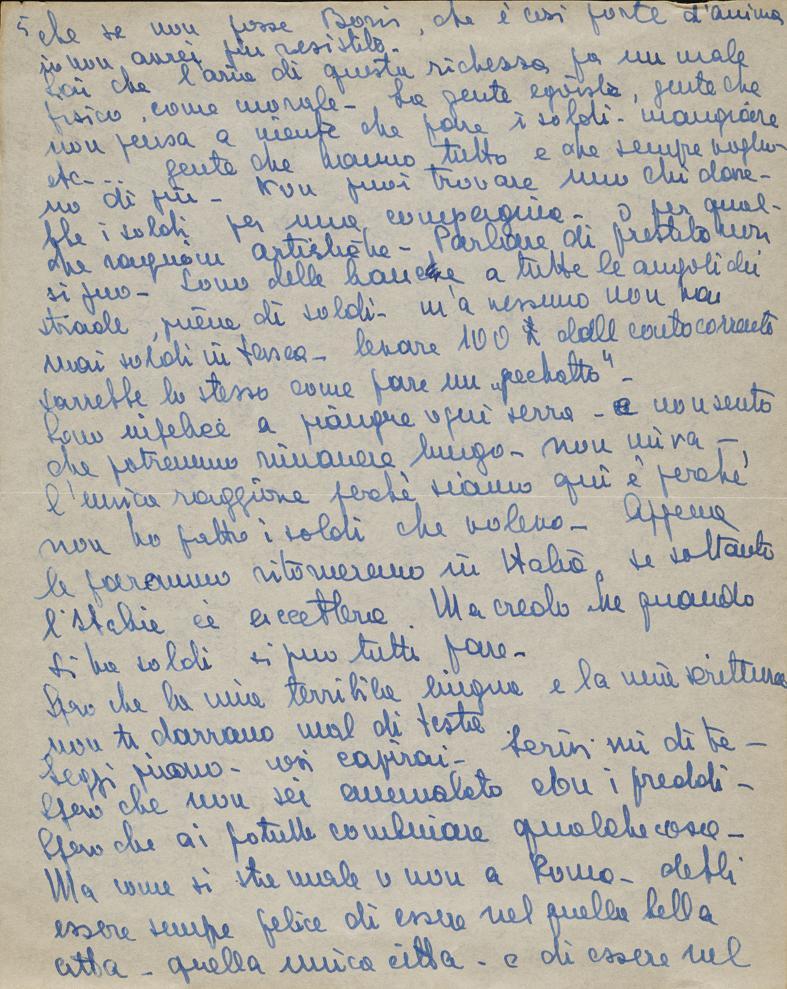 5 che se non fosse Boris, che è cosi forte d'anima
io non avrei più resistito.
Sai che l'aria di questa richessa fa un male
fisico, come morale - La gente egoista, gente che
non pensa a niente che fare i soldi - mangiare
etc... gente che hanno tutto e che sempre voglio-
no di più - Non puoi trovare uno chi dare-
bbe i soldi per una compagnia - o per qual-
che ragioni artistiche - Parlare di prestito non
si puo - Sono delle banche a tutte le angoli di
strade, piene di soldi - m'a nessuno non ha
mai soldi in tasca - levare 100 $ dall conto corrente
sarrebbe lo stesso come fare un „pechatto" -
Sono infelice a piangre ogni serra - e non sento
che potremmo rimanere lungo - non mi va -
l'unica raggione perchè siamo qui è perchè
non ho fatto i soldi che volevo - Appena
le faranno ritorneremo in Italia, se soltanto
l'Italie ci accettera. Ma credo che quando
si ha soldi si puo tutto fare -
Spero che la mia terribile lingua e la mia scrittura
non ti darrano mal di testa
Leggi piano - cosi capirai - Scrivi mi di te -
Spero che non sei ammalato con i freddi -
Spero che ai potutto combinare qualche cosa -
Ma come si sta male o non a Roma - debbi
essere sempre felice di essere nel quella bella
citta - quella unica citta - e di essere nel